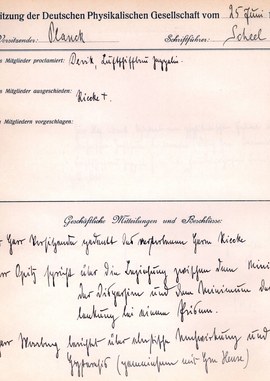 itzung der Deutschen Physikalischen Gesellschaft vom 25 Juni
Vorsitzender: Planck Schriftführer: Scheel
s Mitglieder proclamiert: Luftschiffbau Zeppelin.
s Mitglieder ausgeschieden:
Riecke †.
s Mitgliedern vorgeschlagen:
Geschäftliche Mitteilungen und Beschlüsse:
Herr Vorsitzende gedenkt des verstorbenen Herrn Riecke
err Opitz spricht über die Beziehung zwischen dem Mini
der Dispersion und dem Minimum der
lenkung bei einem Prisma.
err Warburg berichtet über elastische Nachwirkung und
Hysteresis (gemeinsam mit Hrn Heuse)